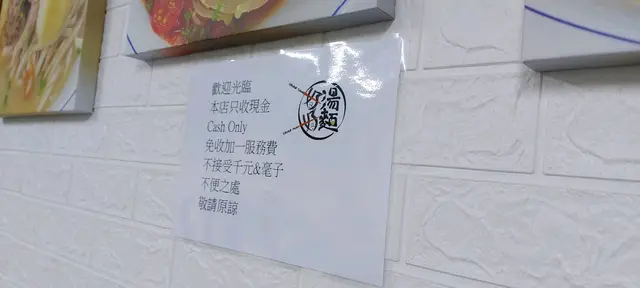 歡迎光臨
本店只收現金
Cash Only
免收加一服務費
不接受千元&毫子
不便之處
敬請原諒
湯麵